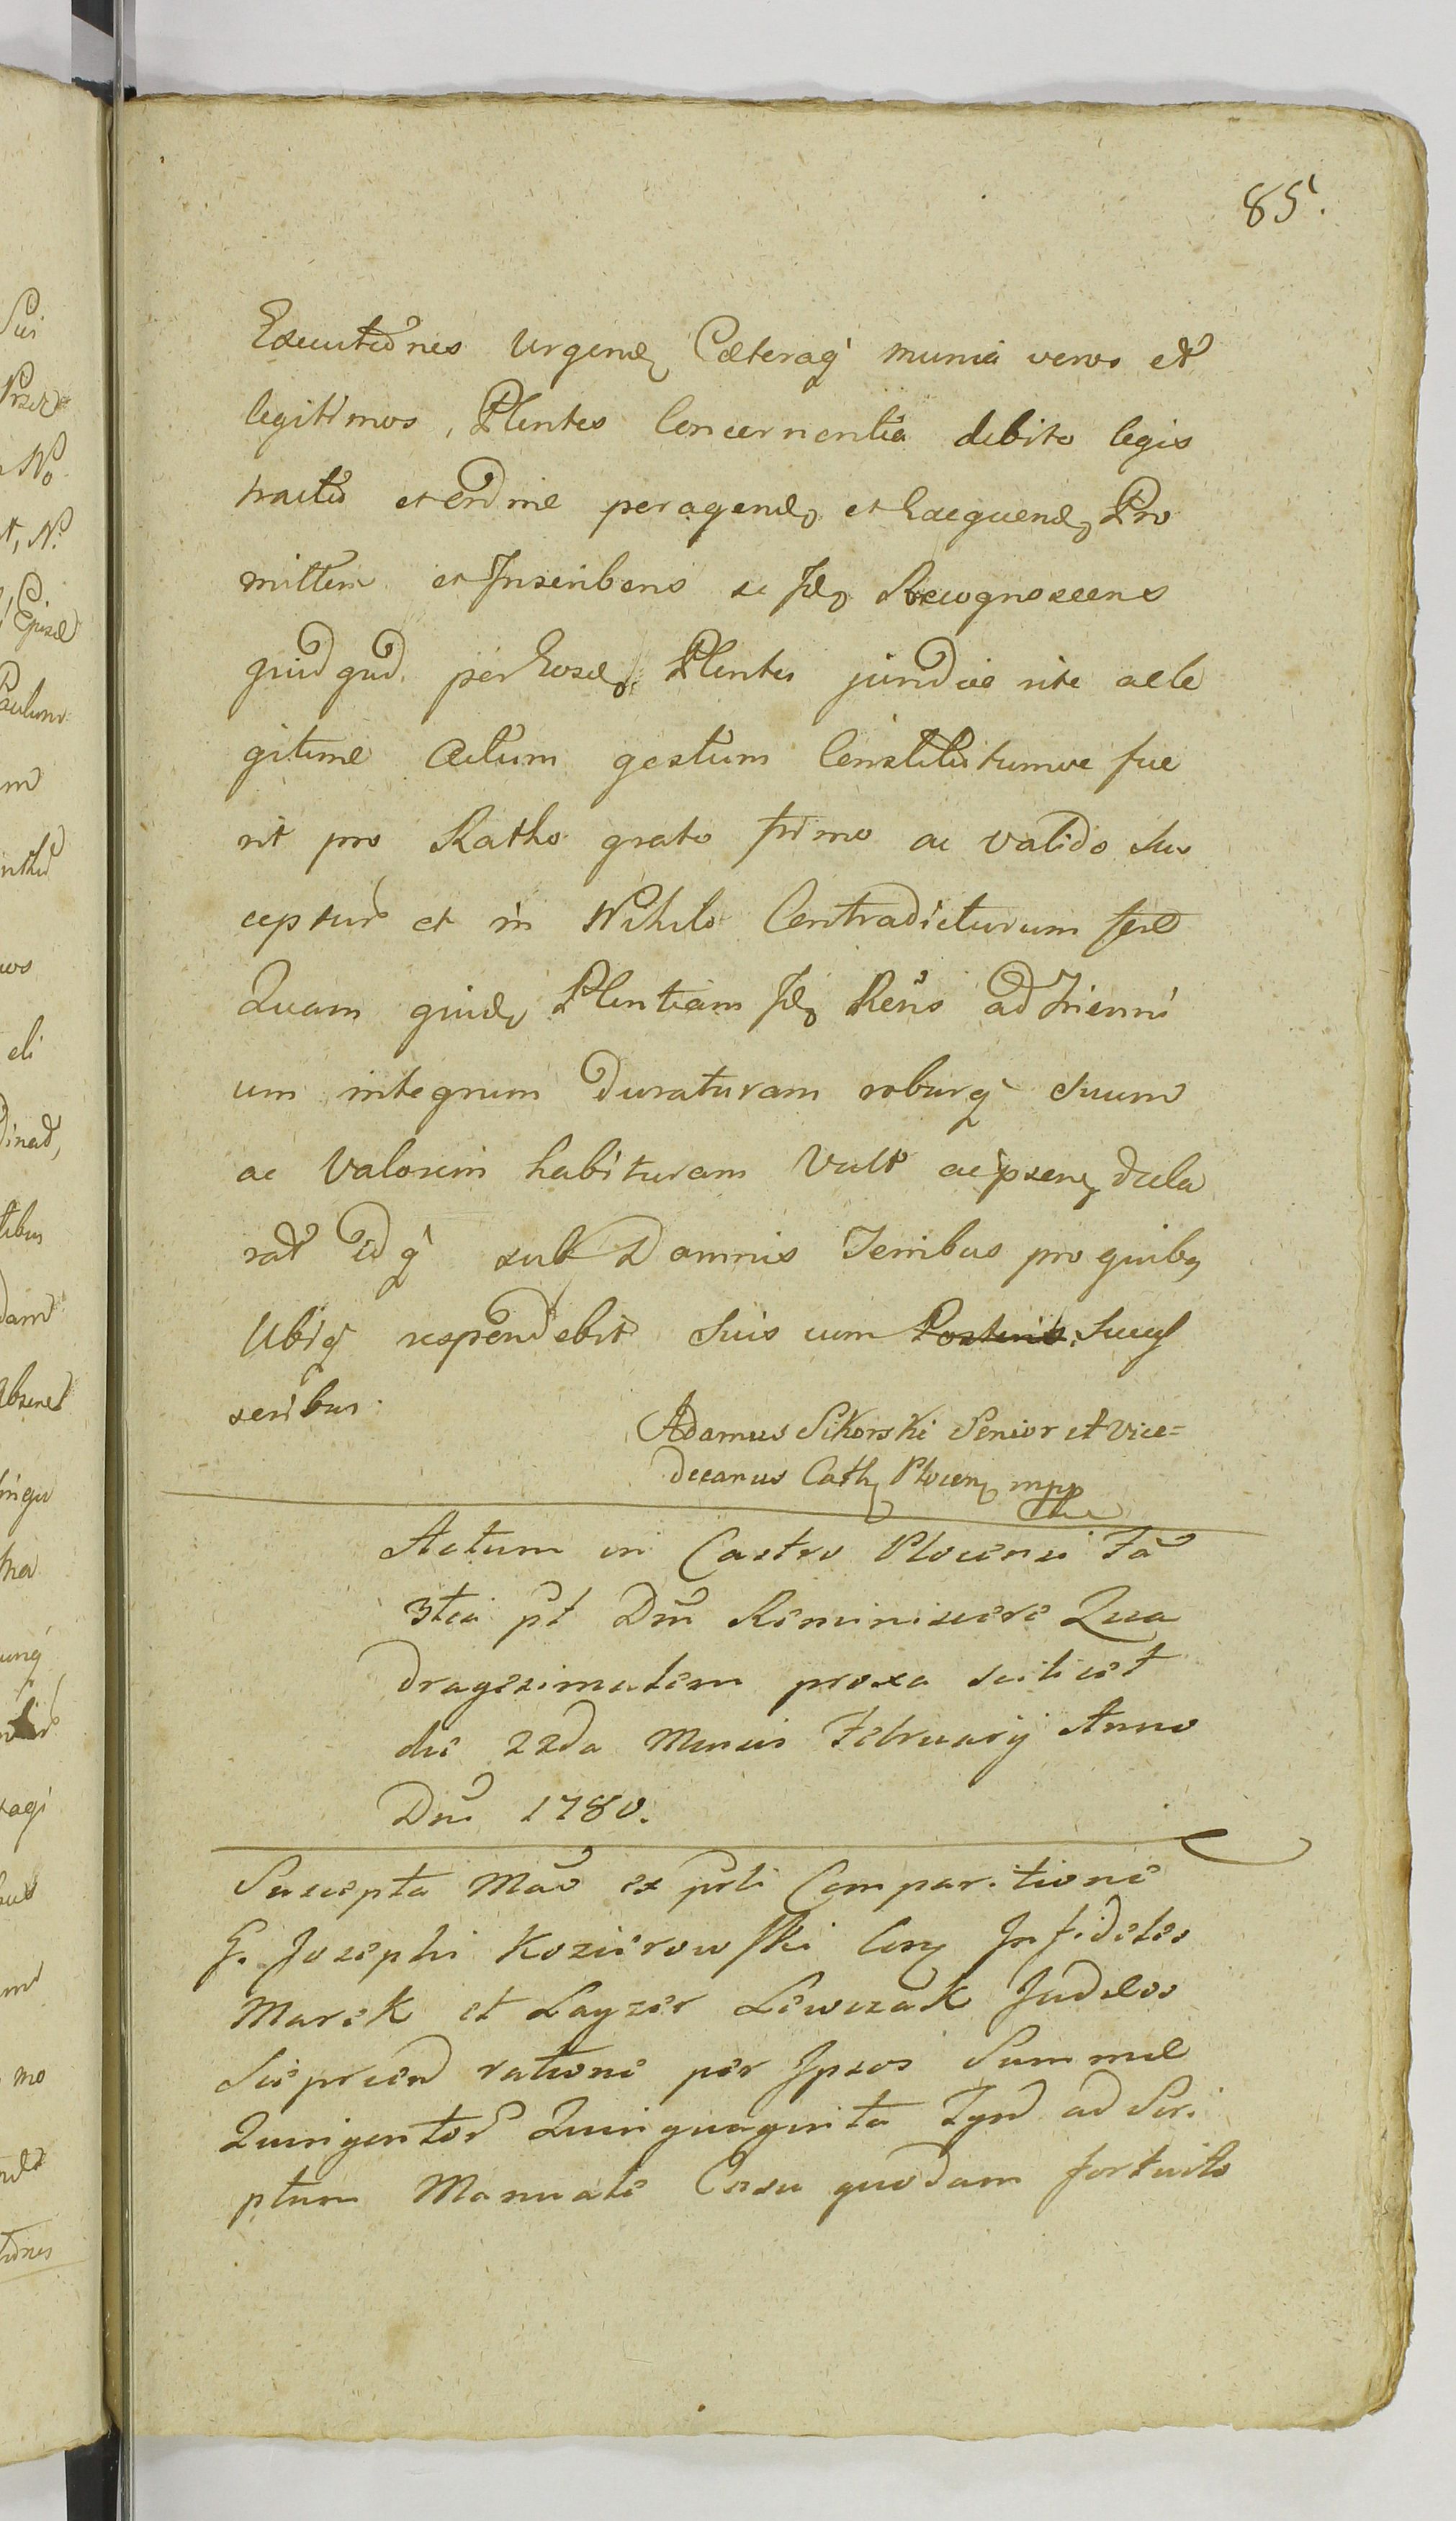 85.
Executiones urgend Caeteraq munia veros et
legitimos, Plentes Concernentia debito legis
tractu et ordine peragend et Exequend Pro
mittens et Inscribens se Id Recognoscens
quidquid per Eosd Plentes juridice rite ac le
gitime Actum gestum Constitutumve fue
rit pro Ratho grato firmo ac valido sus
ceptur et in Nihilo Contradicturum fere
Quam quid Plentiam Id Rens ad trienni
um integrum Duraturam roburq Suum
ac Valorem habituram Vult ac psen decla
rat idq sub Damnis Terribus pro quibq
Ubiq respondebit Suis cum Posteris Succes
soribus.
Adamus Sikorski Senior et Vice=
decanus Cath Plocen mpp
Actum in Castro Plocensi Fa
3tia pt Dni Reminiscere Qua
dragesimalem proxa scilicet
die 22da Mensis February Anno
Dni 1780.
Suscepta Mao ex prti Comparitione
G. Josephi Kozierowski Con Infideles
Marek et Layzer Lewczak Judaeos
ratione per Ipsos Summae
Quingentor Quinquaginta Tyn ad Scri
ptum Manuale Casu quodam fortuito
Sui
No
eli
tibus
dam
mo